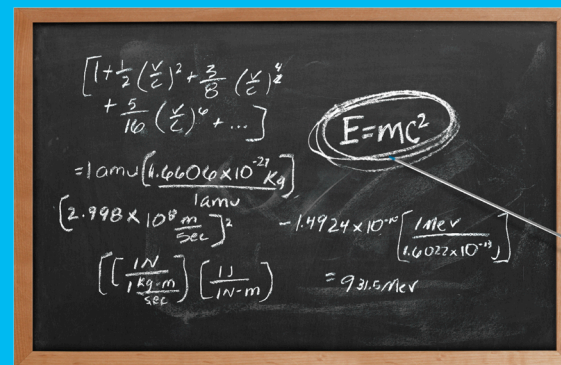 [1+½(v/c)²+3/8 (v/c)⁴
+ 5/16 (v/c)⁶ + ...]
E=mc²
=1amu[1.6606×10⁻²⁷ Kg / 1amu]
[2.998× 10⁸ m/sec]²
[[1N / 1 kg-m/sec] [1J / 1N-m)
-1.4924×10⁻¹⁰ [1Mev / 1.6022×10⁻¹³ J]
= 931.5Mev